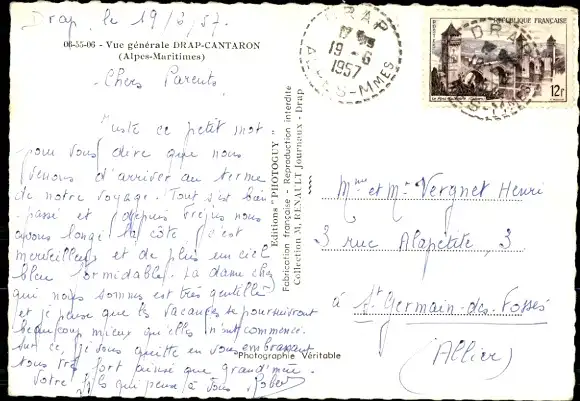 Drap, le 19/6/57.
06-55-06 - Vue générale DRAP-CANTARON
(Alpes-Maritimes)
Chers Parents,
Juste ce petit mot
pour vous dire que nous
venons d'arriver au terme
de notre voyage. Tout s'est bien
passé et depuis Fréjus nous
avons longé la côte, c'est
merveilleux et de plus un ciel
bleu formidable. La dame chez
qui nous sommes est très gentille
et je pense que les vacances se poursuivront
beaucoup mieux qu'elles n'ont commencé.
Sur ce, je vous quitte en vous embrassant
tous très fort ainsi que grand'mère.
Votre fils qui pense à vous Robert
Editions "PHOTOGUY"
Fabrication française - Reproduction interdite
Collection M. RENAULT Journaux - Drap
Photographie Véritable
DRAP
19-6
1957
ALPES-MMES
POSTES
RÉPUBLIQUE FRANÇAISE
12f
DRAP
Mme et Mr Vergnet Henri
3 rue Alapetite, 3
à St Germain-des-Fossés
(Allier)